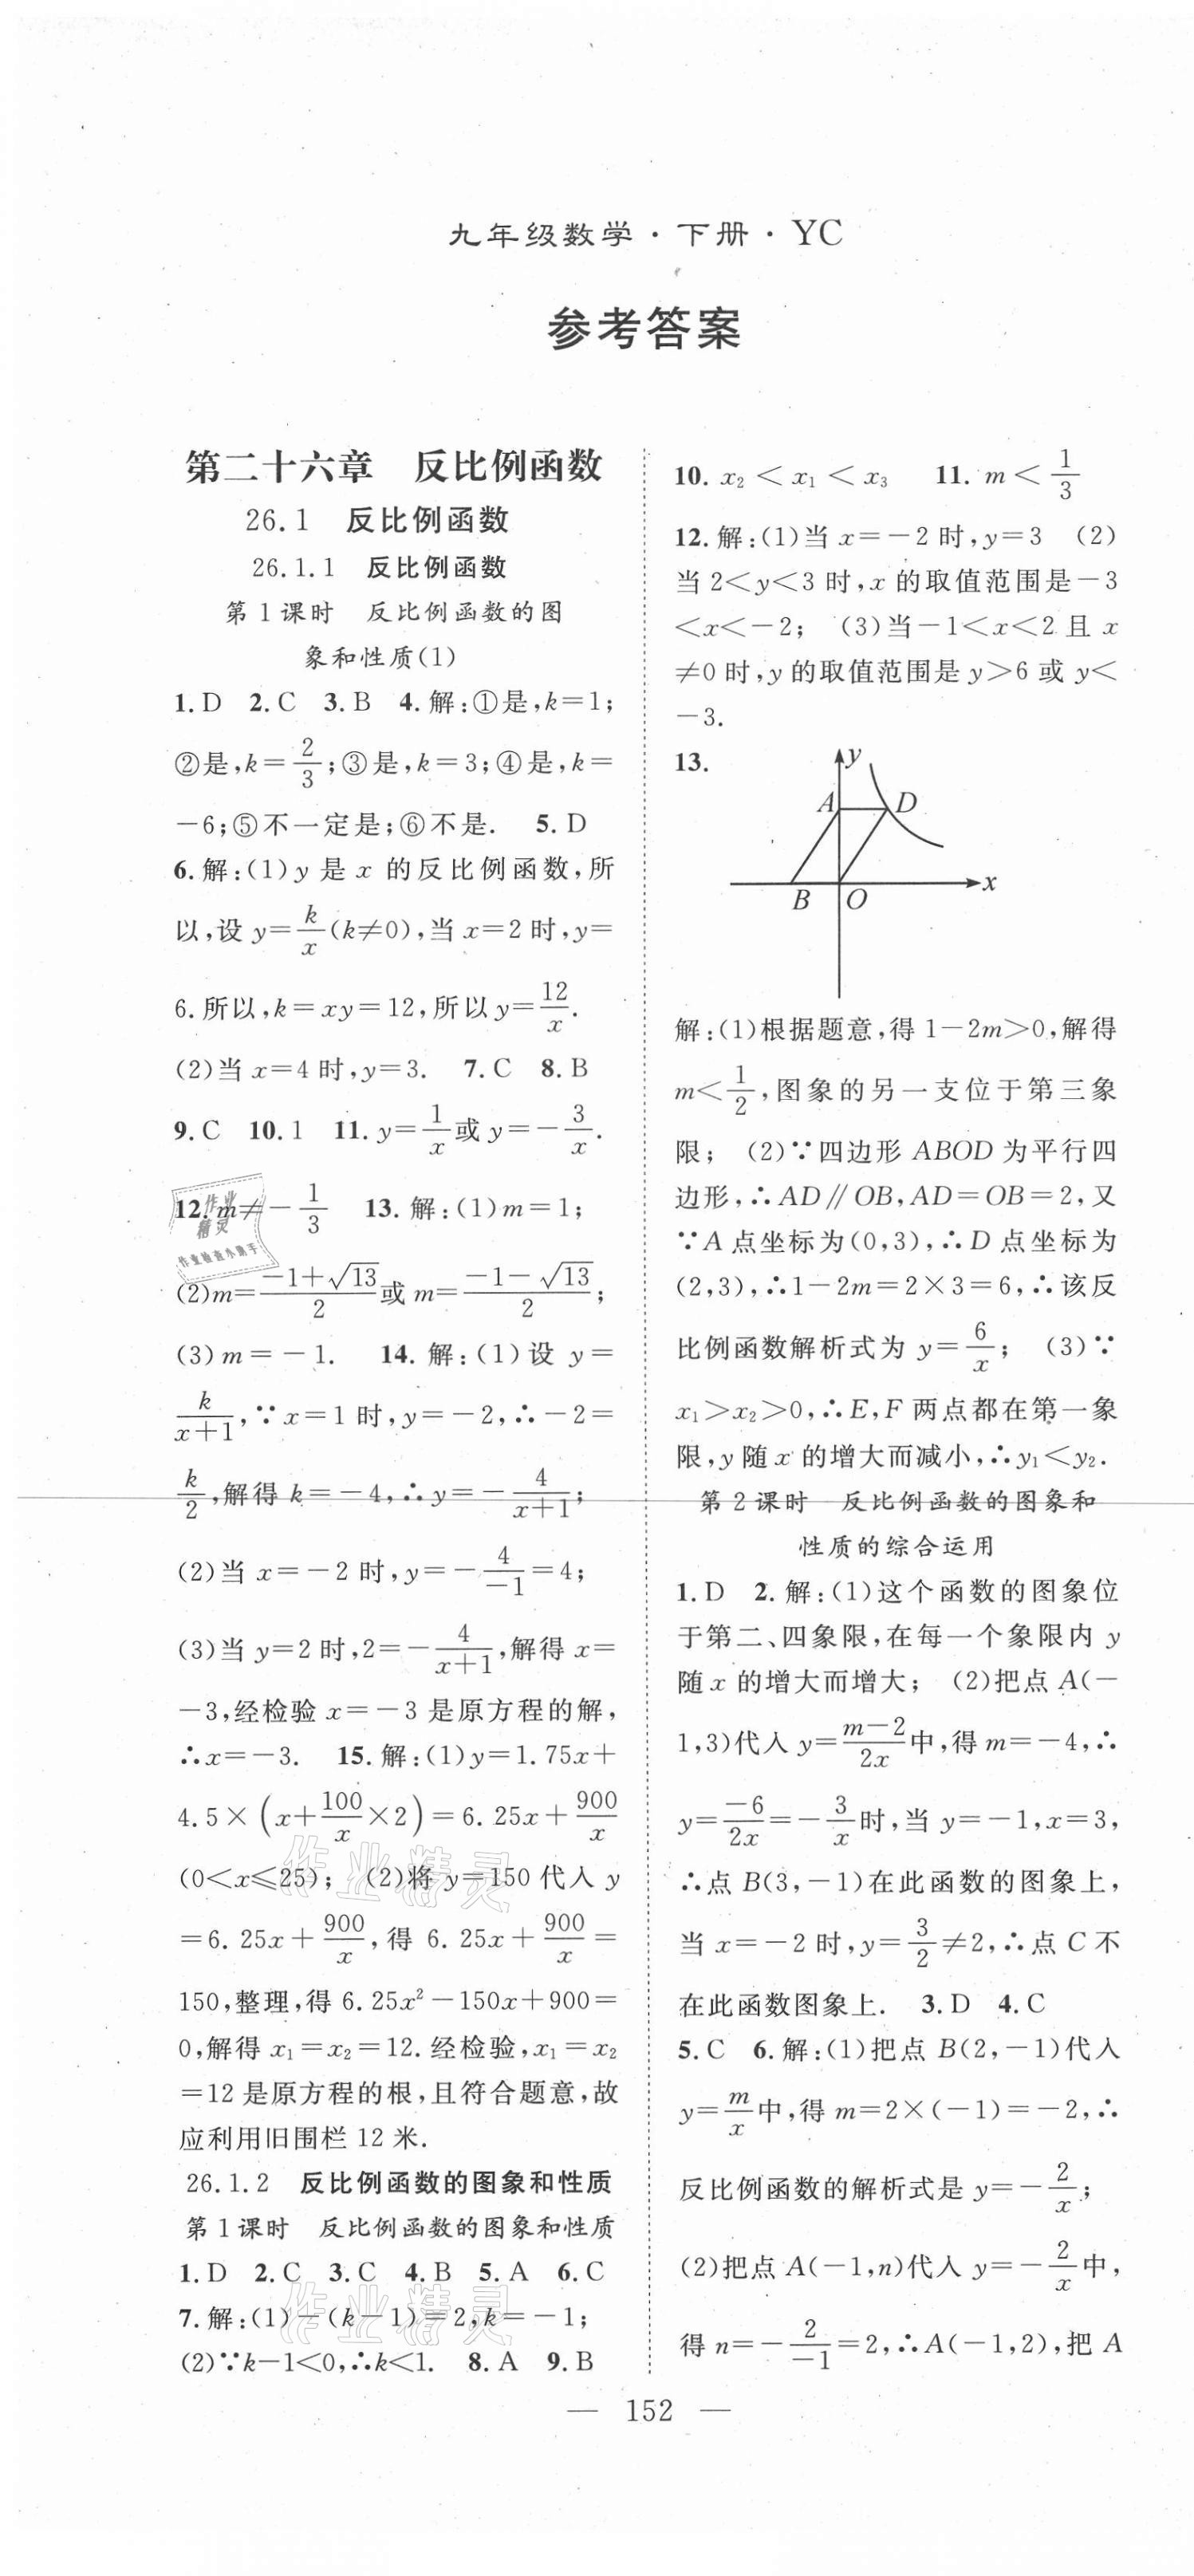 九年级数学·下册·YC
参考答案
第二十六章 反比例函数
26.1 反比例函数
26.1.1 反比例函数
第1课时 反比例函数的图
象和性质(1)
1.D 2.C 3.B 4.解:①是,k=1;
②是,k=2/3;③是,k=3;④是,k=
-6;⑤不一定是;⑥不是. 5.D
6.解:(1)y 是 x 的反比例函数,所
以,设 y=k/x(k≠0),当 x=2 时,y=
6.所以,k=xy=12,所以 y=12/x.
(2)当 x=4 时,y=3. 7.C 8.B
9.C 10.1 11.y=1/x或 y=-3/x.
12.m≠-1/3 13.解:(1)m=1;
(2)m=(-1+√13)/2或 m=(-1-√13)/2;
(3)m=-1. 14.解:(1)设 y=
k/(x+1),∵x=1 时,y=-2,∴-2=
k/2,解得 k=-4,∴y=-4/(x+1);
(2)当 x=-2 时,y=-4/(-1)=4;
(3)当 y=2 时,2=-4/(x+1),解得 x=
-3,经检验 x=-3 是原方程的解,
∴x=-3. 15.解:(1)y=1.75x+
4.5×(x+100/x×2)=6.25x+900/x
(0<x≤25); (2)将 y=150 代入 y
=6.25x+900/x,得 6.25x+900/x=
150,整理,得 6.25x²-150x+900=
0,解得 x₁=x₂=12.经检验,x₁=x₂
=12 是原方程的根,且符合题意,故
应利用旧围栏 12 米.
26.1.2 反比例函数的图象和性质
第1课时 反比例函数的图象和性质
1.D 2.C 3.C 4.B 5.A 6.C
7.解:(1)-(k-1)=2,k=-1;
(2)∵k-1<0,∴k<1. 8.A 9.B
10.x₂<x₁<x₃ 11.m<1/3
12.解:(1)当 x=-2 时,y=3 (2)
当 2<y<3 时,x 的取值范围是-3
<x<-2; (3)当-1<x<2 且 x
≠0 时,y 的取值范围是 y>6 或 y<
-3.
13.
y
A D
B O x
解:(1)根据题意,得 1-2m>0,解得
m<1/2,图象的另一支位于第三象
限; (2)∵四边形 ABOD 为平行四
边形,∴AD∥OB,AD=OB=2,又
∵A 点坐标为(0,3),∴D 点坐标为
(2,3),∴1-2m=2×3=6,∴该反
比例函数解析式为 y=6/x; (3)∵
x₁>x₂>0,∴E,F 两点都在第一象
限,y 随 x 的增大而减小,∴y₁<y₂.
第2课时 反比例函数的图象和
性质的综合运用
1.D 2.解:(1)这个函数的图象位
于第二、四象限,在每一个象限内 y
随 x 的增大而增大; (2)把点 A(-
1,3)代入 y=(m-2)/2x中,得 m=-4,∴
y=-6/2x=-3/x时,当 y=-1,x=3,
∴点 B(3,-1)在此函数的图象上,
当 x=-2 时,y=3/2≠2,∴点 C 不
在此函数图象上. 3.D 4.C
5.C 6.解:(1)把点 B(2,-1)代入
y=m/x中,得 m=2×(-1)=-2,∴
反比例函数的解析式是 y=-2/x;
(2)把点 A(-1,n)代入 y=-2/x中,
得 n=-2/(-1)=2,∴A(-1,2),把 A
— 152 —
作业
精灵
作业检查小助手
作业精灵
作业精灵